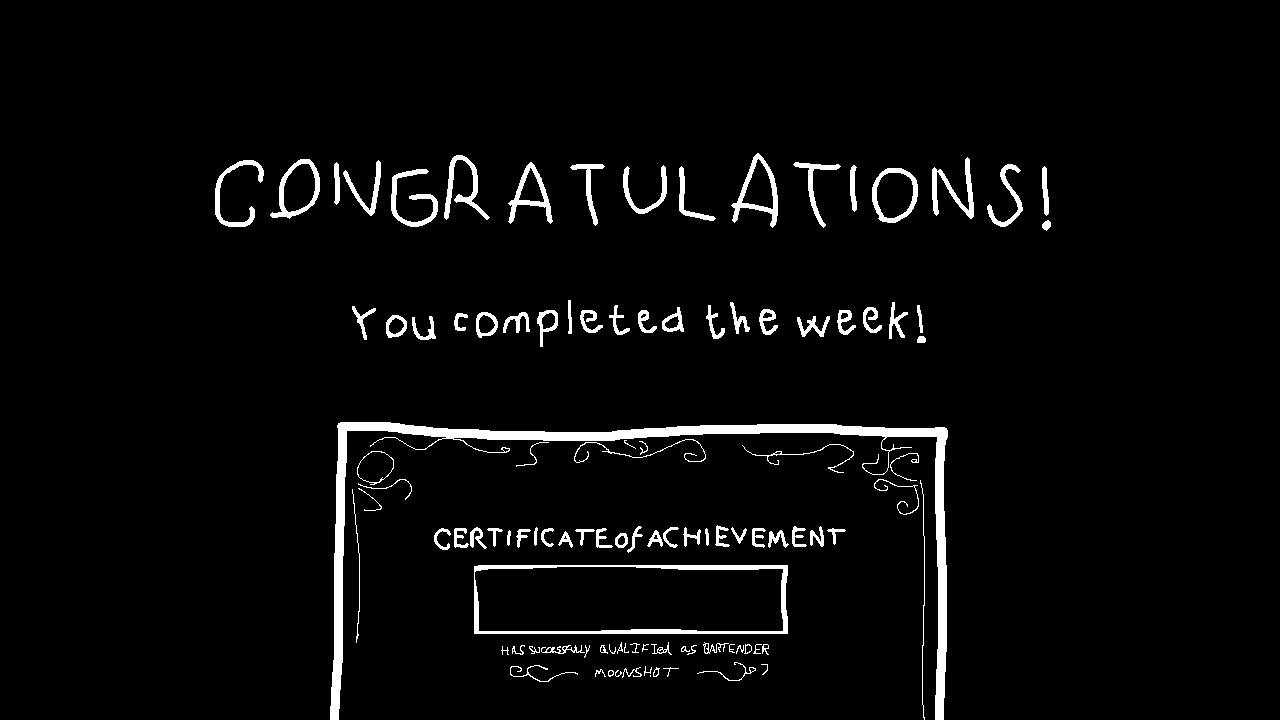 CONGRATULATIONS!
You completed the week!
CERTIFICATE of ACHIEVEMENT
HAS SUCCESSFULLY QUALIFIEd as BARTENDER
MOONSHOT